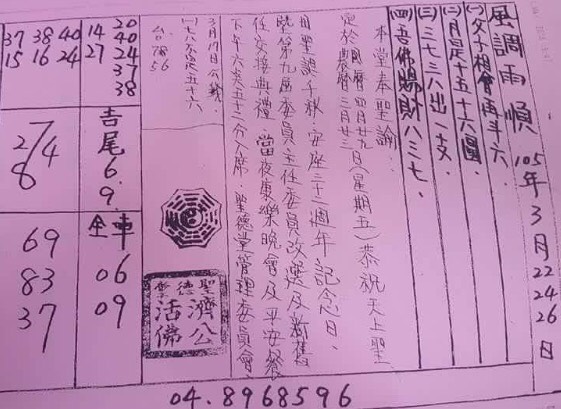 風調雨順 105年3月22 24 26日
(一)父子相會再斗六.
(二)月是十五十六圓.
(三)三七三八出一支.
(四)吾佛賜財八三七.
本堂奉聖諭.
定於國曆四月廿九日(星期五)恭祝天上聖
農曆三月廿三
母聖誕千秋.安座三十二週年記念日.
暨第九屆委員主任委員改選及新舊
任交接典禮.當夜康樂晚會及平安餐
下午六點五十二分入席.聖德堂管理委員會.
3月17日公機
台號56
聖德堂
濟公活佛
20
40
24
37
38
14
27
40
24
38
16
37
15
吉尾6.9.
2/4
8
全車
06
09
69
83
37
04.8968596